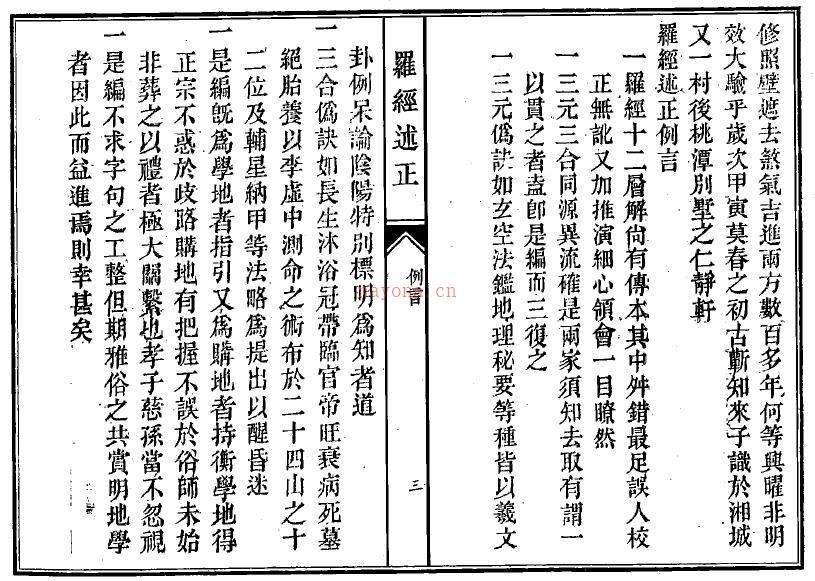 修照壁遮去煞氣吉進兩方數百多年何等興曜非明
效大驗乎歲次甲寅莫春之初古蘄知來子識於湘城
又一村後桃潭別墅之仁靜軒
羅經述正例言
一羅經十二層解尙有傳本其中舛錯最足誤人校
正無訛又加推演細心領會一目瞭然
一三元三合同源異流確是兩家須知去取有謂一
以貫之者盍卽是編而三復之
一三元僞訣如玄空法鑑地理秘要等種皆以羲文
羅經述正
例言
三
卦例呆論陰陽特別標明爲知者道
一三合僞訣如長生沐浴冠帶臨官帝旺衰病死墓
絕胎養以李虛中測命之術布於二十四山之十
二位及輔星納甲等法略爲提出以醒昏迷
一是編旣爲學地者指引又爲購地者持衡學地得
正宗不惑於歧路購地有把握不誤於俗師未始
非葬之以禮者極大關繫也孝子慈孫當不忽視
一是編不求字句之工整但期雅俗之共賞明地學
者因此而益進焉則幸甚矣
nayona.cn